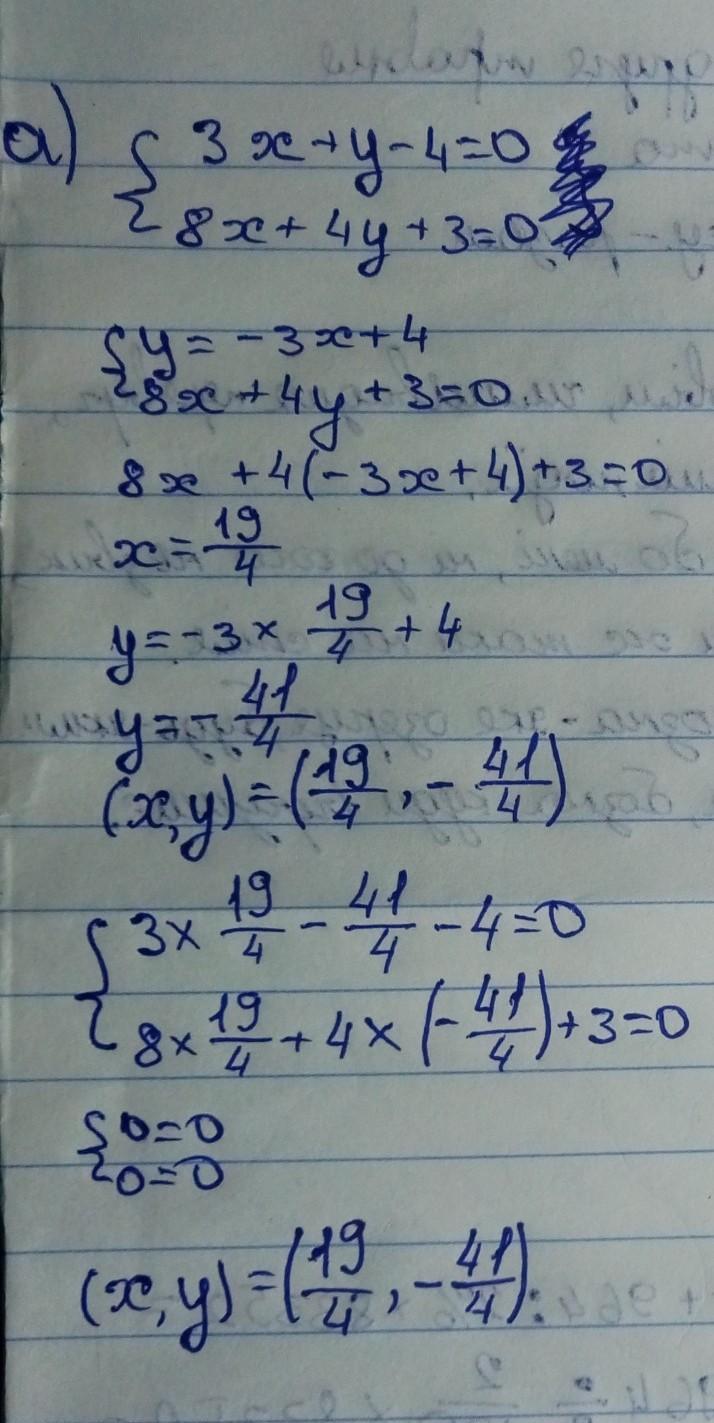 а) { 3x+y-4=0
8x+4y+3=0
{ y=-3x+4
8x+4y+3=0
8x+4(-3x+4)+3=0
x=19/4
y=-3×19/4+4
y=-41/4
(x,y)=(19/4,-41/4)
{ 3×19/4-41/4-4=0
8×19/4+4×(-41/4)+3=0
{ 0=0
0=0
(x,y)=(19/4,-41/4)